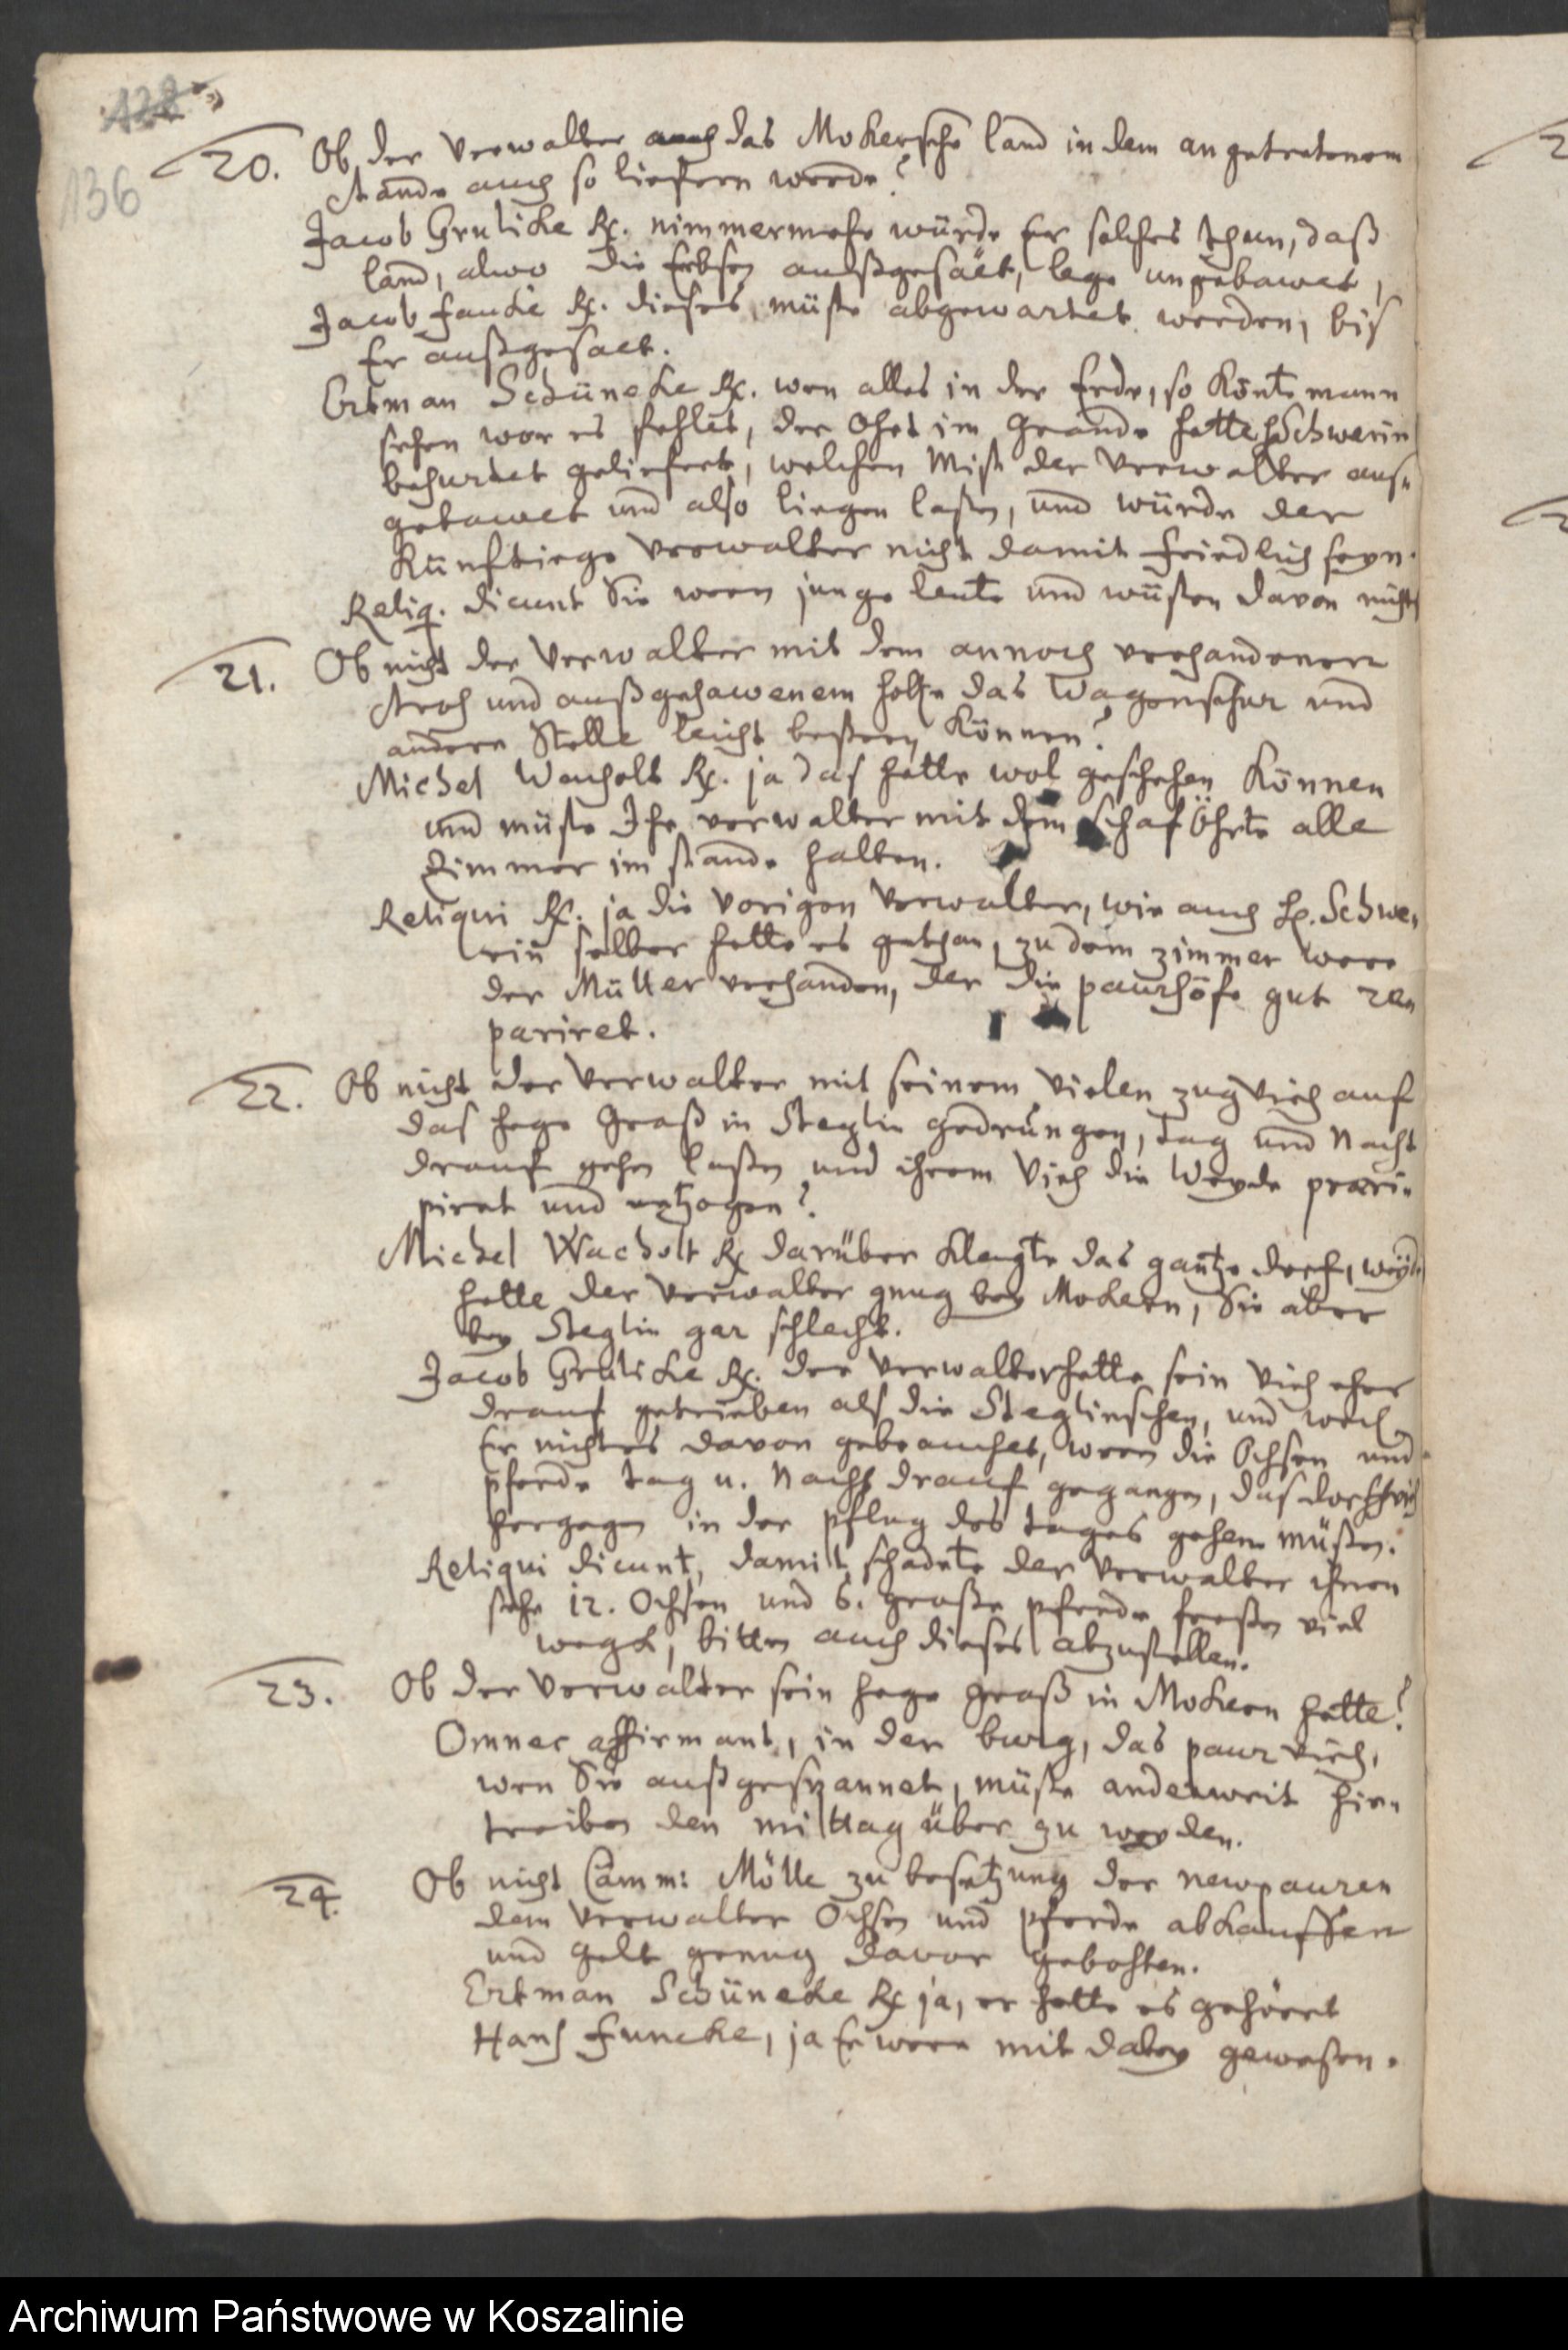 128
136
20. Ob der Verwalter auch das Mokersche land in dem angetretenem
stande auch so liefern werde?
Jacob Grulicke Rx. nimmermehr würde Er solches thun, daß
land, alwo die Erbsen außgesäet, lege ungebawet,
Jacob Fancke Rx. dieses müste abgewartet werden, biß
Er außgesäet.
Ertman Schünecke Rx. wen alles in der Erde, so könte mann
sehen wor es fehlet, der Ohrt im grande hette H. Schwerin
behurdet geliefert, welchen Mist der Verwalter auß-
gebawet und also liegen laßen, und würde der
Künftiege Verwalter nicht damit friedlich seyn.
Reliq. dicunt Sie weren junge leute und wüsten davon nichts
21. Ob nicht der Verwalter mit dem annoch verhandenen
stroh und außgehawenem holtze das Wagenschur und
andere Stelle leicht beßern können?
Michel Wacholt Rx. ja das hette wol geschehen können
und müste Ihr verwalter mit dem alle
Zimmer im stande halten.
Reliqui Rx. ja die vorigen Verwalter, wie auch H. Schwe-
rin selber hette es gethan, zu dem zimmer were
der Müller verhanden, der die paurhöfe gut re-
pariret.
22. Ob nicht der Verwalter mit seinem vielen zugvieh auf
das hege Graß in Steglin gedrungen, Tag und Nacht
drauf gehen laßen und ihrem Vieh die Weyde præri-
piret und entzogen?
Michel Wacholt Rx darüber klagte das gantze dorf, weyde
hette der Verwalter gnug bey Mokern, Sie aber
bey Steglin gar schlecht.
Jacob Grulicke Rx. der Verwalter hette sein Vieh eher
drauf getrieben als die Steglinschen, und weil
Er nichtes davon gebrauchet, weren die Ochsen und
pferde tag u. Nacht drauf gegangen, das dorfvieh
hergegen in der pflug des tages gehen müßen.
Reliqui dicunt, damit schadete der Verwalter ihnen
sehr 12. Ochsen und 6. große pferde freßen viel
wegk, bitten auch dieses abzustellen.
23. Ob der Verwalter sein hege graß in Mokern hette?
Omnes affirmant, in der burg, das paur vieh,
wen Sie außgespannet, müste anderweit hin-
treiben den mittag über zu weyden.
24. Ob nicht Camm: Mölle zu besetzung der newpauren
dem Verwalter Ochsen und pferde abkauffen
und gelt genug davor gebohten.
Ertman Schünecke Rx ja, er hette es gehöret
Hanß Funcke, ja Er were mit dabey gewesen.
Archiwum Państwowe w Koszalinie